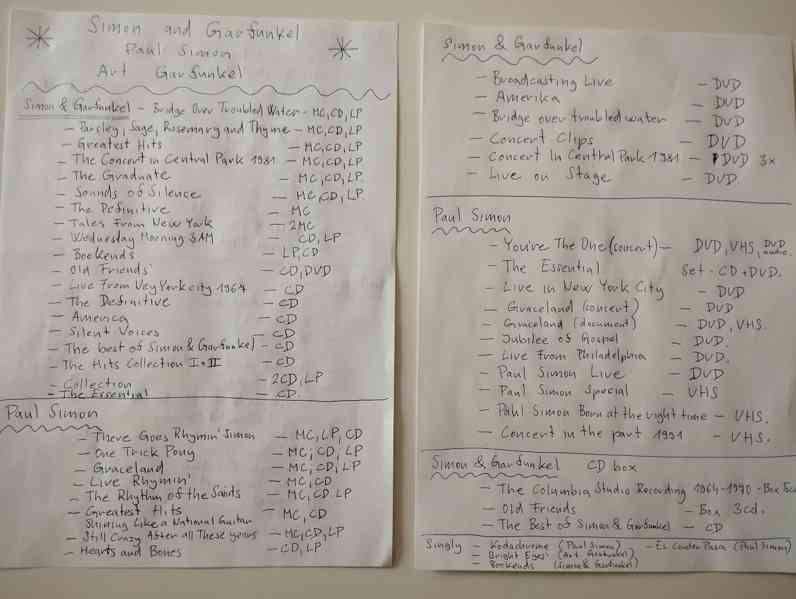 Simon and Garfunkel
Paul Simon
Art Garfunkel
Simon & Garfunkel - Bridge Over Troubled Water - MC, CD, LP
- Parsley, Sage, Rosemary and Thyme - MC, CD, LP
- Greatest Hits - MC, CD, LP
- The Concert in Central Park 1981 - MC, CD, LP
- The Graduate - MC, CD, LP
- Sounds of Silence - MC, CD, LP
- The Definitive - MC
- Tales From New York - 2MC
- Wednesday Morning 3AM - CD, LP
- Bookends - LP, CD
- Old Friends - CD, DVD
- Live From Ney York city 1967 - CD
- The Definitive - CD
- America - CD
- Silent Voices - CD
- The best of Simon & Garfunkel - CD
- The Hits Collection I+II - CD
- Collection - 2CD, LP
- The Essential - CD
Paul Simon
- There Goes Rhymin' Simon - MC, LP, CD
- One Trick Pony - MC, CD, LP
- Graceland - MC, CD, LP
- Live Rhymin' - MC, CD
- The Rhythm of the Saints - MC, CD LP
- Greatest Hits - MC, CD
Shining Like a National Guitar
- Still Crazy After all These years - MC, CD, LP
- Hearts and Bones - CD, LP
Simon & Garfunkel
- Broadcasting Live - DVD
- Amerika - DVD
- Bridge over troubled water - DVD
- Concert Clips - DVD
- Concert In Central Park 1981 - DVD 3x
- Live on Stage - DVD.
Paul Simon
- You're The One (concert) - DVD, VHS, DVD audio.
- The Essential Set - CD + DVD.
- Live in New York City - DVD
- Graceland (concert) - DVD
- Graceland (document) - DVD, VHS.
- Jubilee of Gospel - DVD.
- Live From Philadelphia - DVD.
- Paul Simon Live - DVD
- Paul Simon Special - VHS
- Paul Simon Born at the right time - VHS.
- Concert in the part 1991 - VHS.
Simon & Garfunkel CD box
- The Columbia Studio Recording 1964-1970 - Box
- Old Friends - Box 3cd.
- The Best of Simon & Garfunkel - CD
Singly - Kodachrome (Paul Simon) - El Condor Pasa (Paul Simon)
- Bright Eyes (Art Garfunkel)
- Bookends (Simon & Garfunkel)